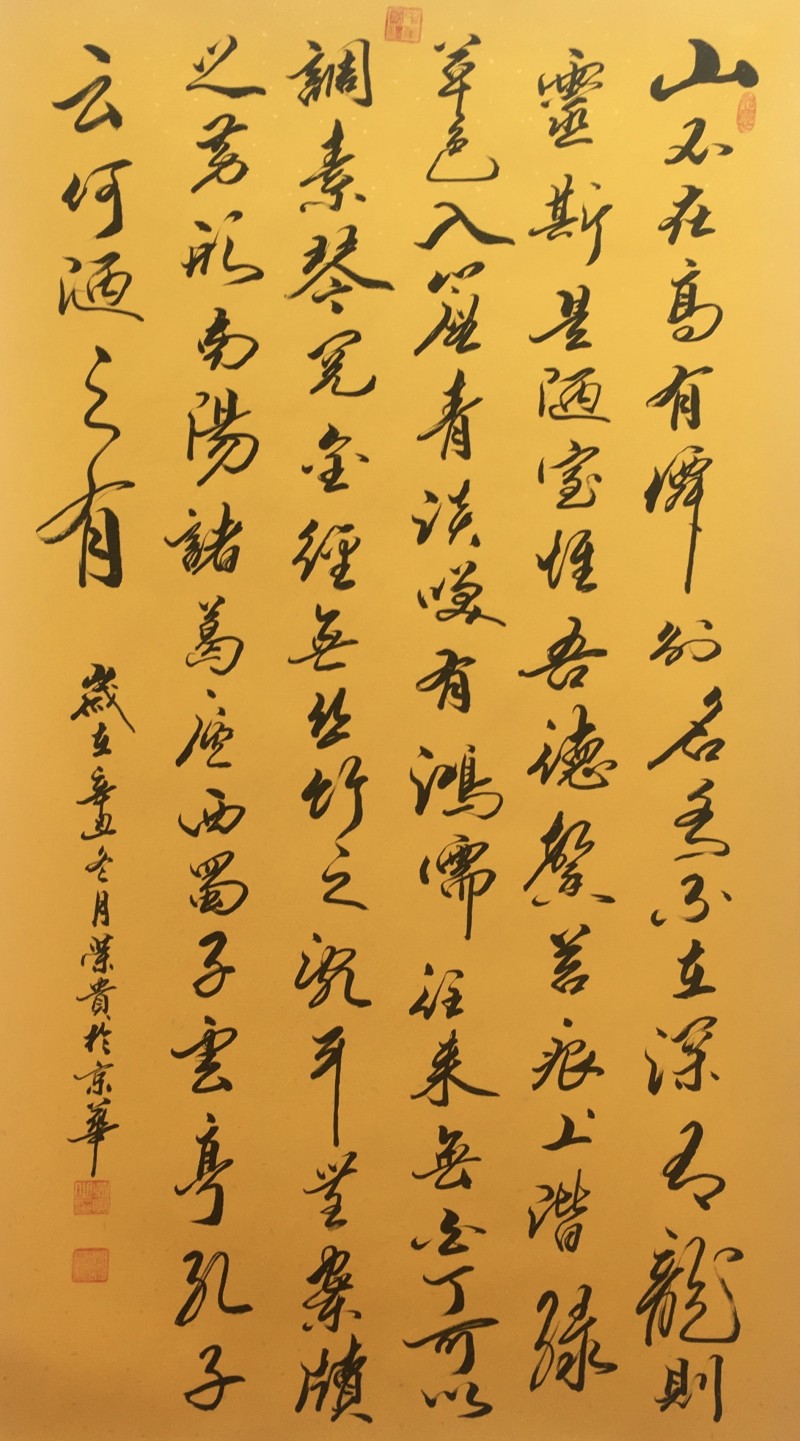 山不在高有僊則名水不在深有龍則
靈斯是陋室惟吾德馨苔痕上階綠
草色入簾青談咲有鴻儒往来無白丁可以
調素琴閱金經無丝竹之亂耳無案牘
之勞形南陽諸葛廬西蜀子雲亭孔子
云何陋之有
歲在辛丑冬月榮貴於京華